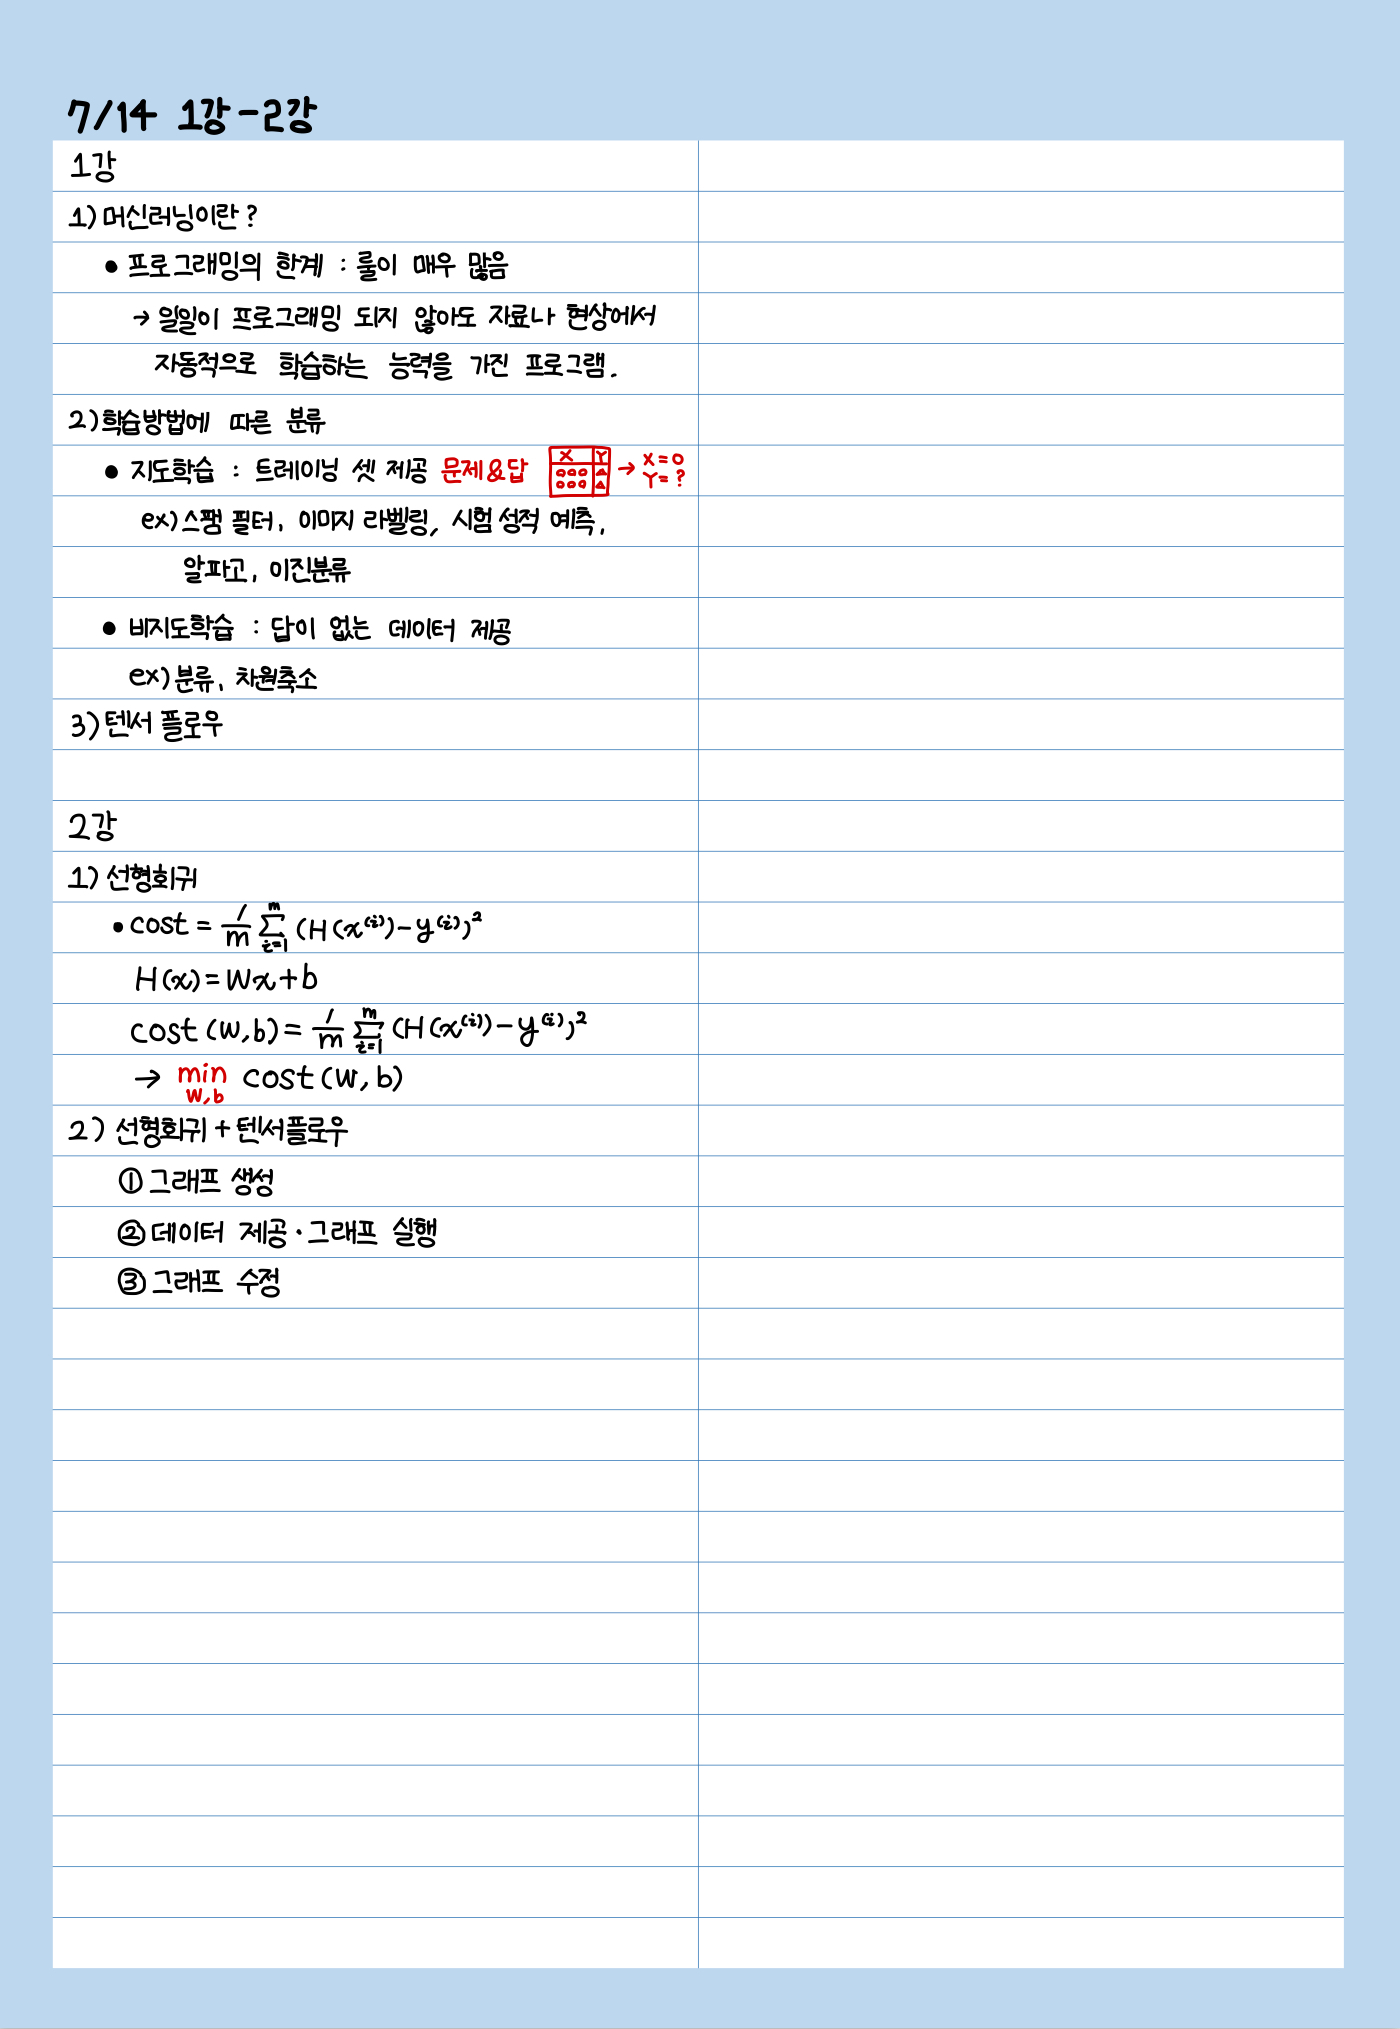 7/14 1강-2강
1강
1) 머신러닝이란?
• 프로그래밍의 한계 : 룰이 매우 많음
→ 일일이 프로그래밍 되지 않아도 자료나 현상에서
자동적으로 학습하는 능력을 가진 프로그램.
2) 학습방법에 따른 분류
• 지도학습 : 트레이닝 셋 제공 문제&답 X Y → X=0 Y=?
ex) 스팸 필터, 이미지 라벨링, 시험 성적 예측,
알파고, 이진분류
• 비지도학습 : 답이 없는 데이터 제공
ex) 분류, 차원축소
3) 텐서 플로우
2강
1) 선형회귀
• cost = 1/m Σ_{i=1}^{m} (H(x^{(i)}) - y^{(i)})²
H(x) = Wx + b
cost(W,b) = 1/m Σ_{i=1}^{m} (H(x^{(i)}) - y^{(i)})²
→ min_{W,b} cost(W,b)
2) 선형회귀 + 텐서플로우
① 그래프 생성
② 데이터 제공·그래프 실행
③ 그래프 수정